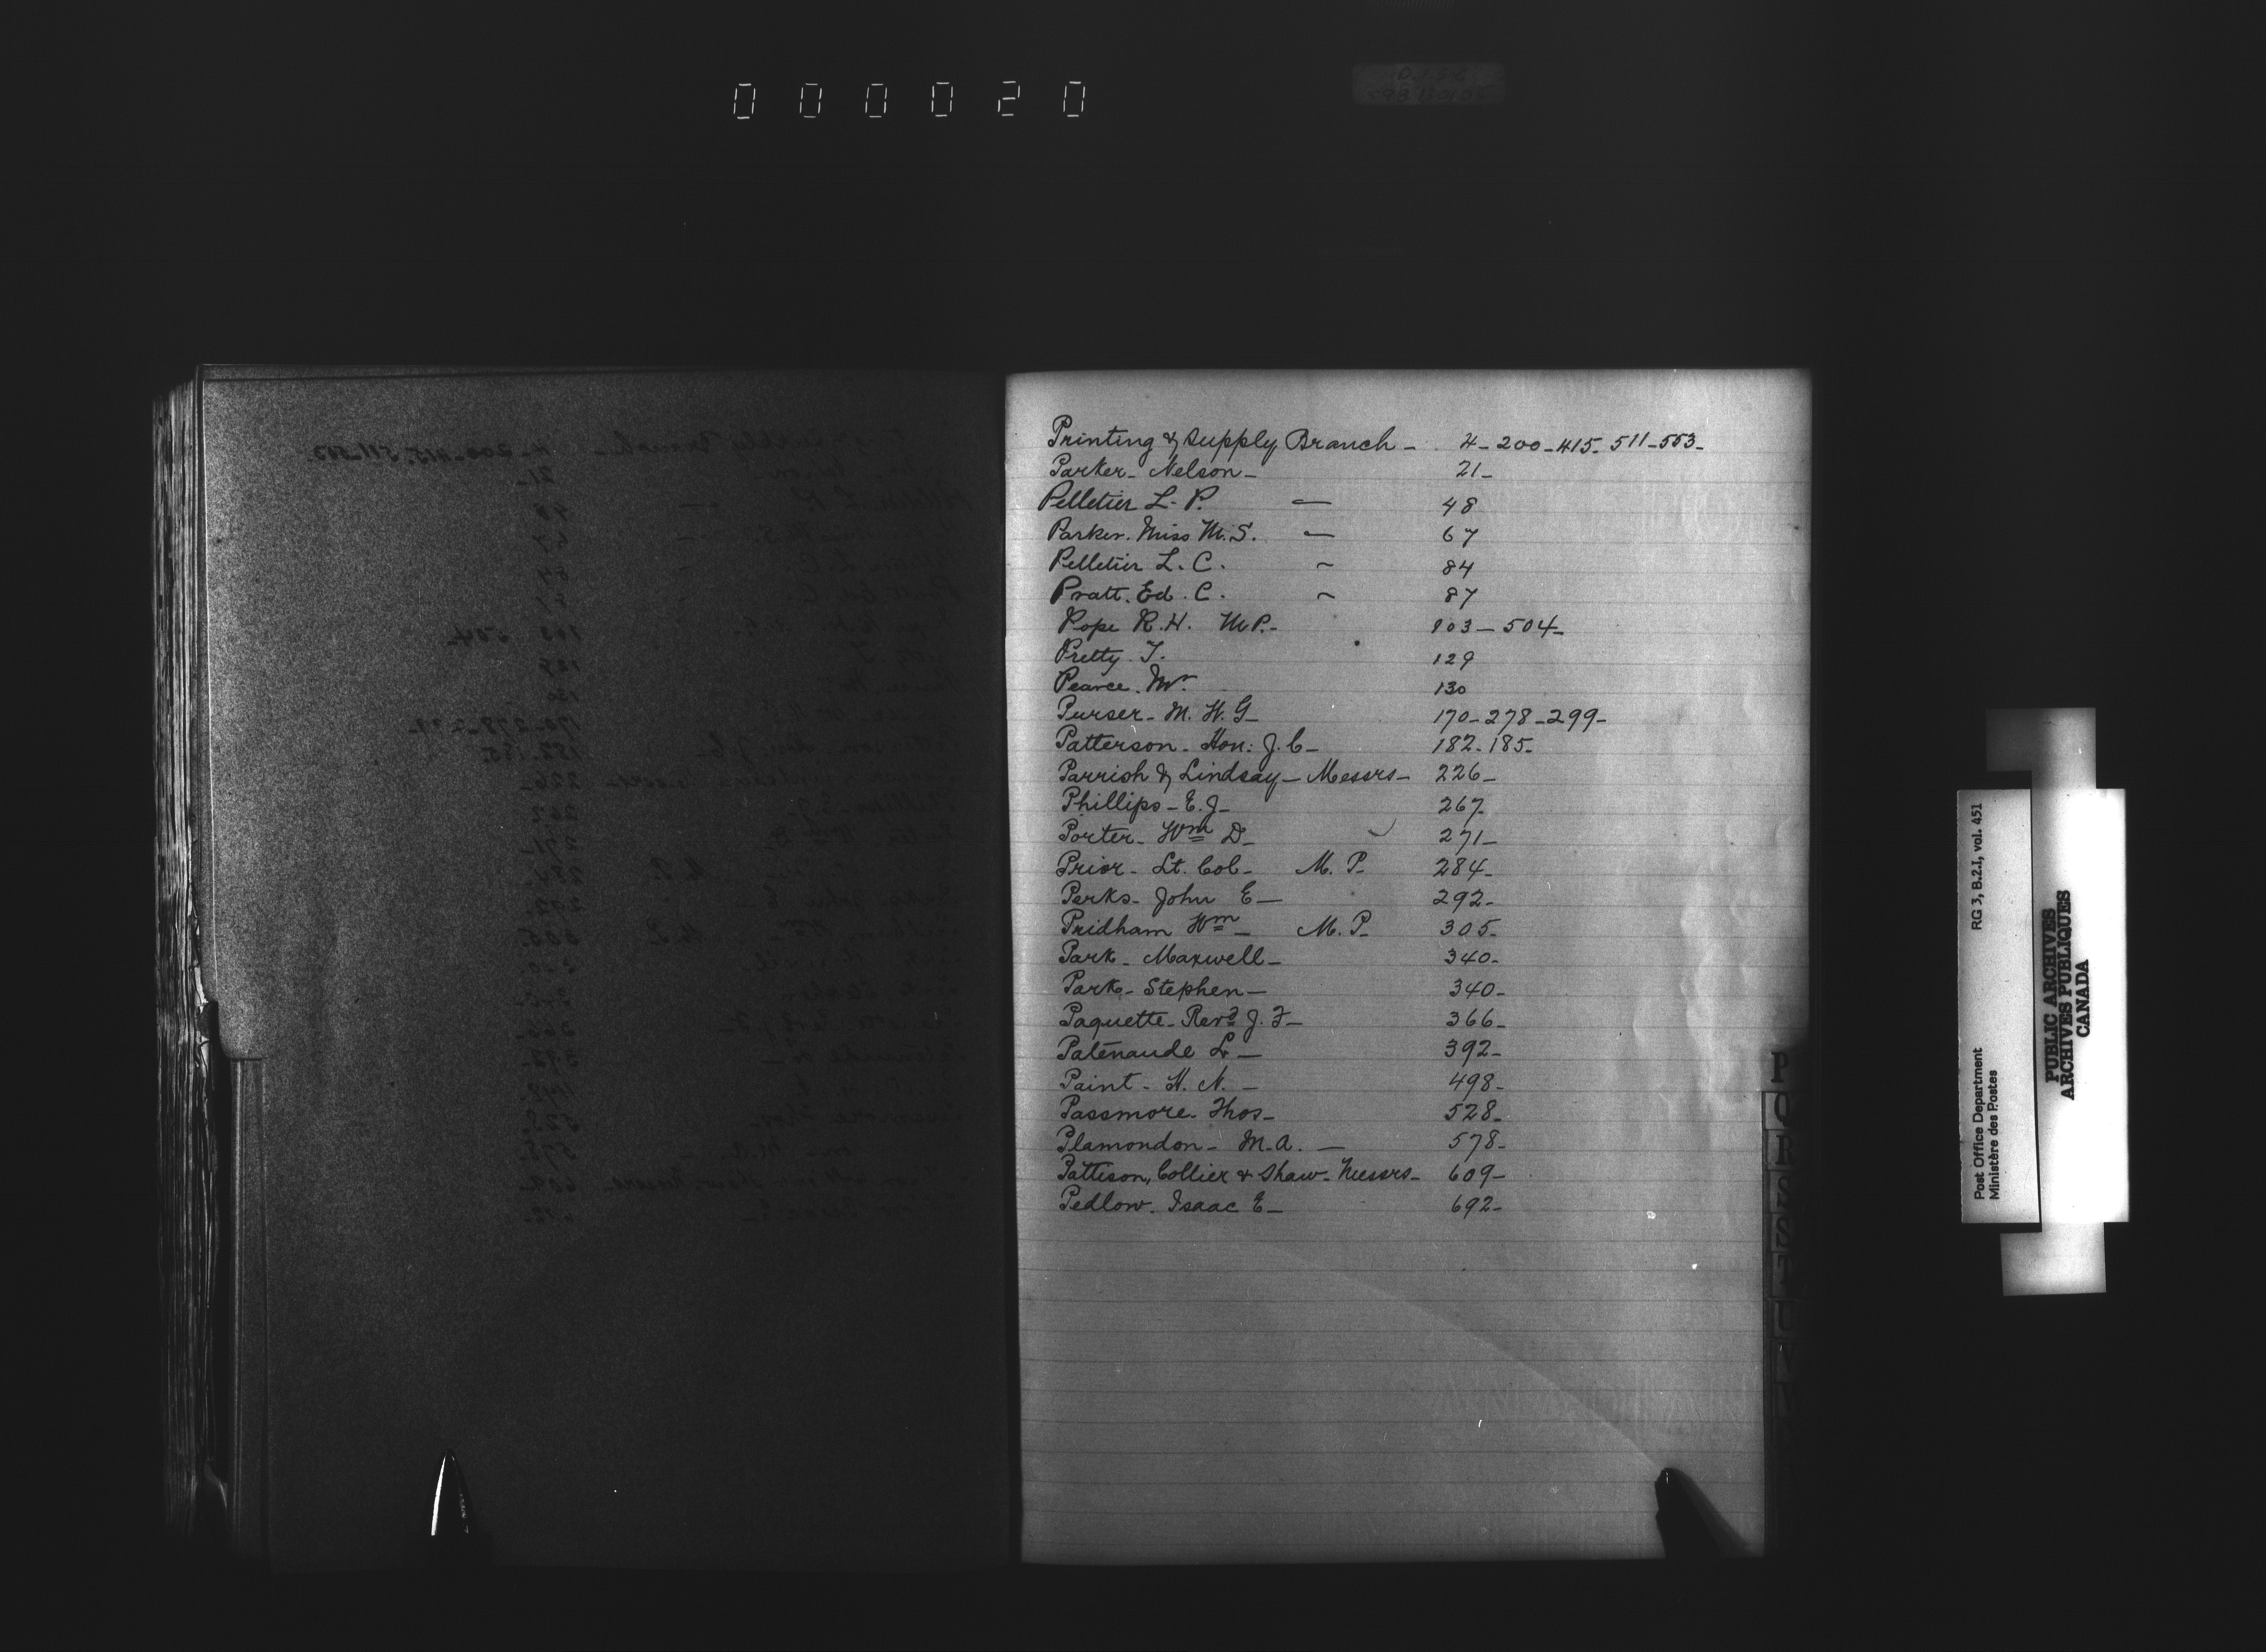 000020
Printing & Supply Branch - 4 - 200 - 415 - 511 - 553 -
Parker - Nelson - 21 -
Pelletier L. P. — 48
Parker. Miss M. S. — 67
Pelletier L. C. ~ 84
Pratt. Ed. C. ~ 87
Pope R. H. M P. - 103 — 504 -
Pretty. T. 129
Pearce. Mr. 130
Purser - M. H. G - 170 - 278 - 299 -
Patterson - Hon: J. C - 182 - 185 -
Parrish & Lindsay - Messrs - 226 -
Phillips - E. J - 267
Porter - Wm D - 271 -
Prior - Lt. Col - M. P. 284 -
Perks - John E — 292 -
Pridham Wm - M. P. 305 -
Park - Maxwell - 340 -
Park - Stephen - 340 -
Paquette - Revd J. F - 366 -
Patenaude L — 392 -
Paint - H. N. - 498 -
Passmore - Thos - 528 -
Plamondon - M. A. — 578 -
Pattison, Collier & Shaw - Messrs - 609 -
Pedlow. Isaac E - 692 -
P
Q
R
S
T
U
V
W
Post Office Department RG 3, B.2.I, vol. 451
Ministère des Postes
PUBLIC ARCHIVES
ARCHIVES PUBLIQUES
CANADA